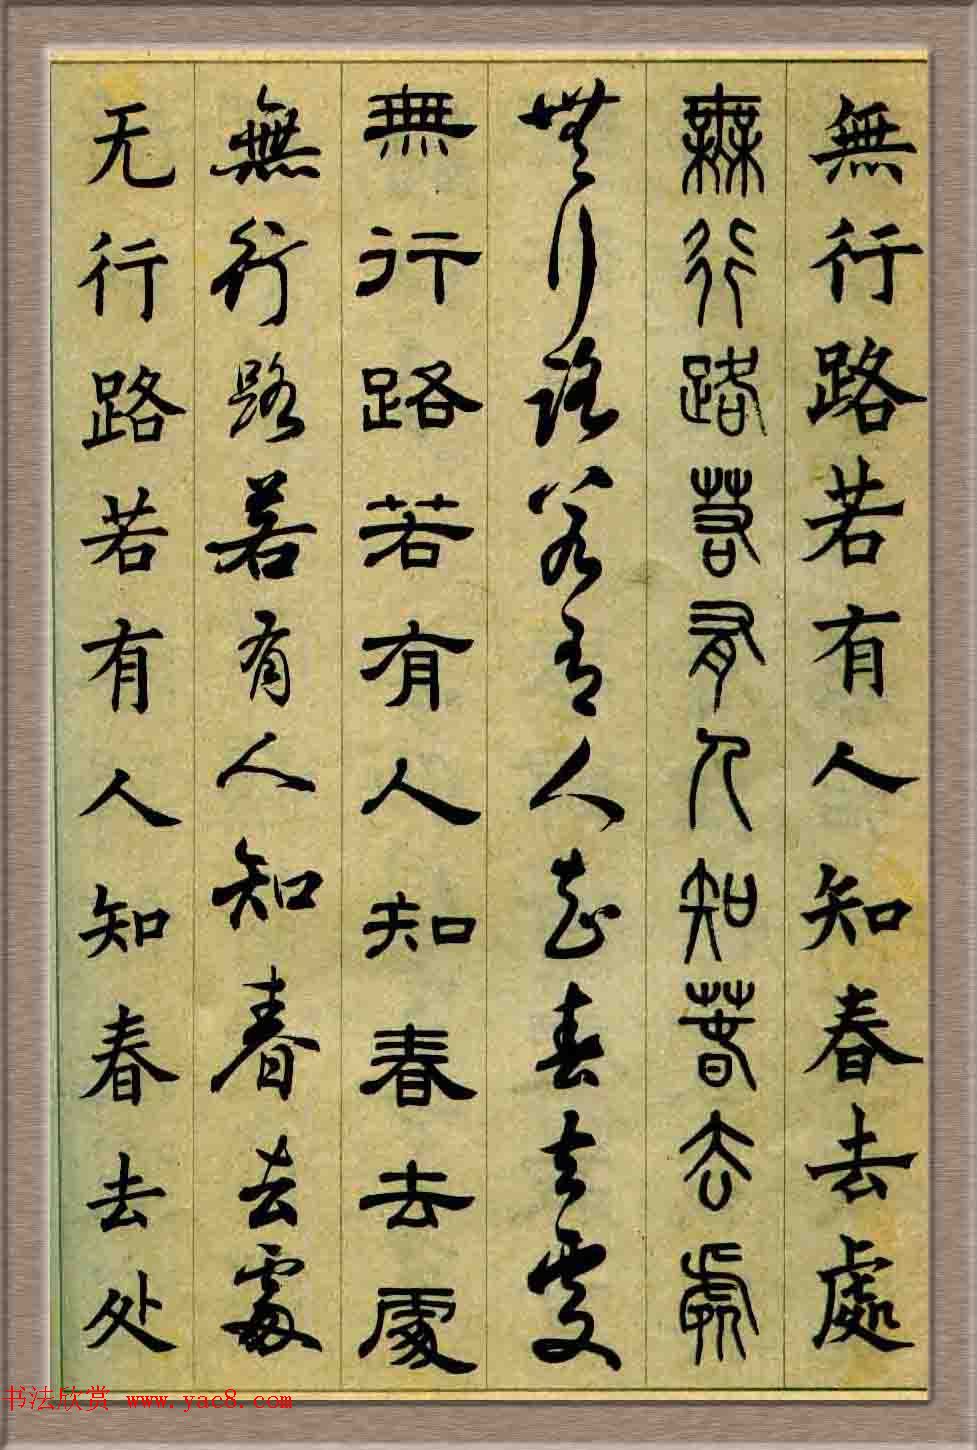 無行路若有人知春去處
無行路若有人知春去處
無行路若有人知春去處
無行路若有人知春去處
無行路若有人知春去處
无行路若有人知春去处
书法欣赏 www.yac8.com